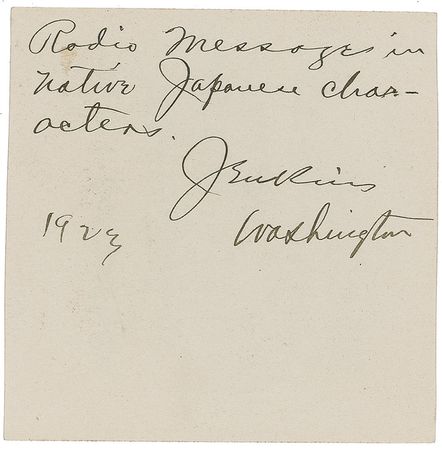 Radio Messages in
native Japanese char-
acters.
Jenkins
1923
Washington